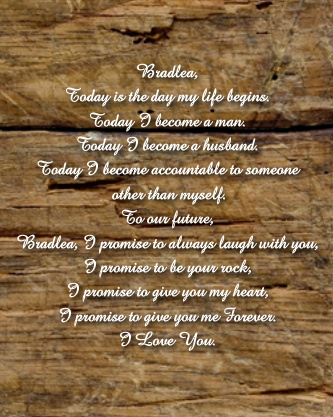 Bradlea,
Today is the day my life begins.
Today I become a man.
Today I become a husband.
Today I become accountable to someone
other than myself.
To our future,
Bradlea, I promise to always laugh with you,
I promise to be your rock,
I promise to give you my heart,
I promise to give you me Forever.
I Love You.